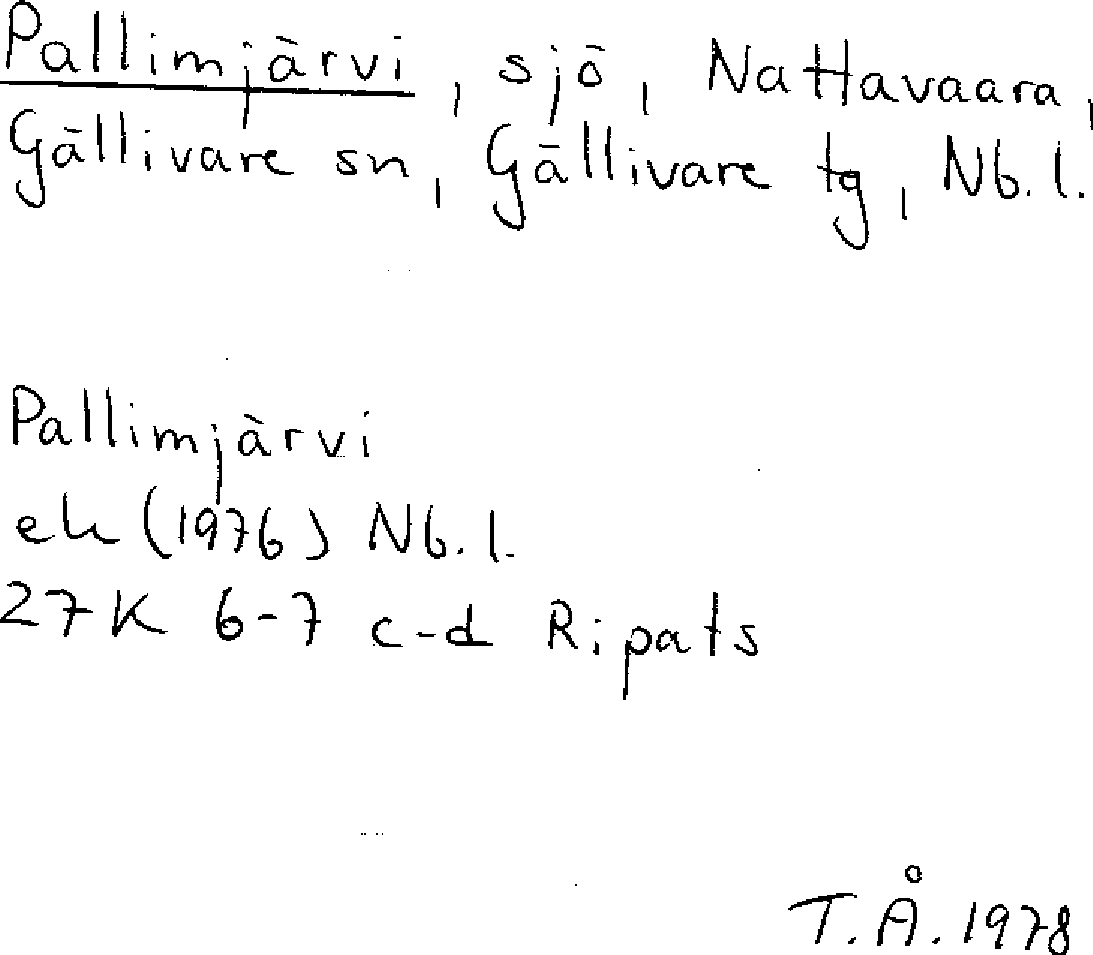 Pallimjärvi, sjö, Nattavaara,
Gällivare sn, Gällivare tg, Nb.l.
Pallimjärvi
ek (1976) Nb.l.
27K 6-7 c-d Ripats
T.Å. 1978